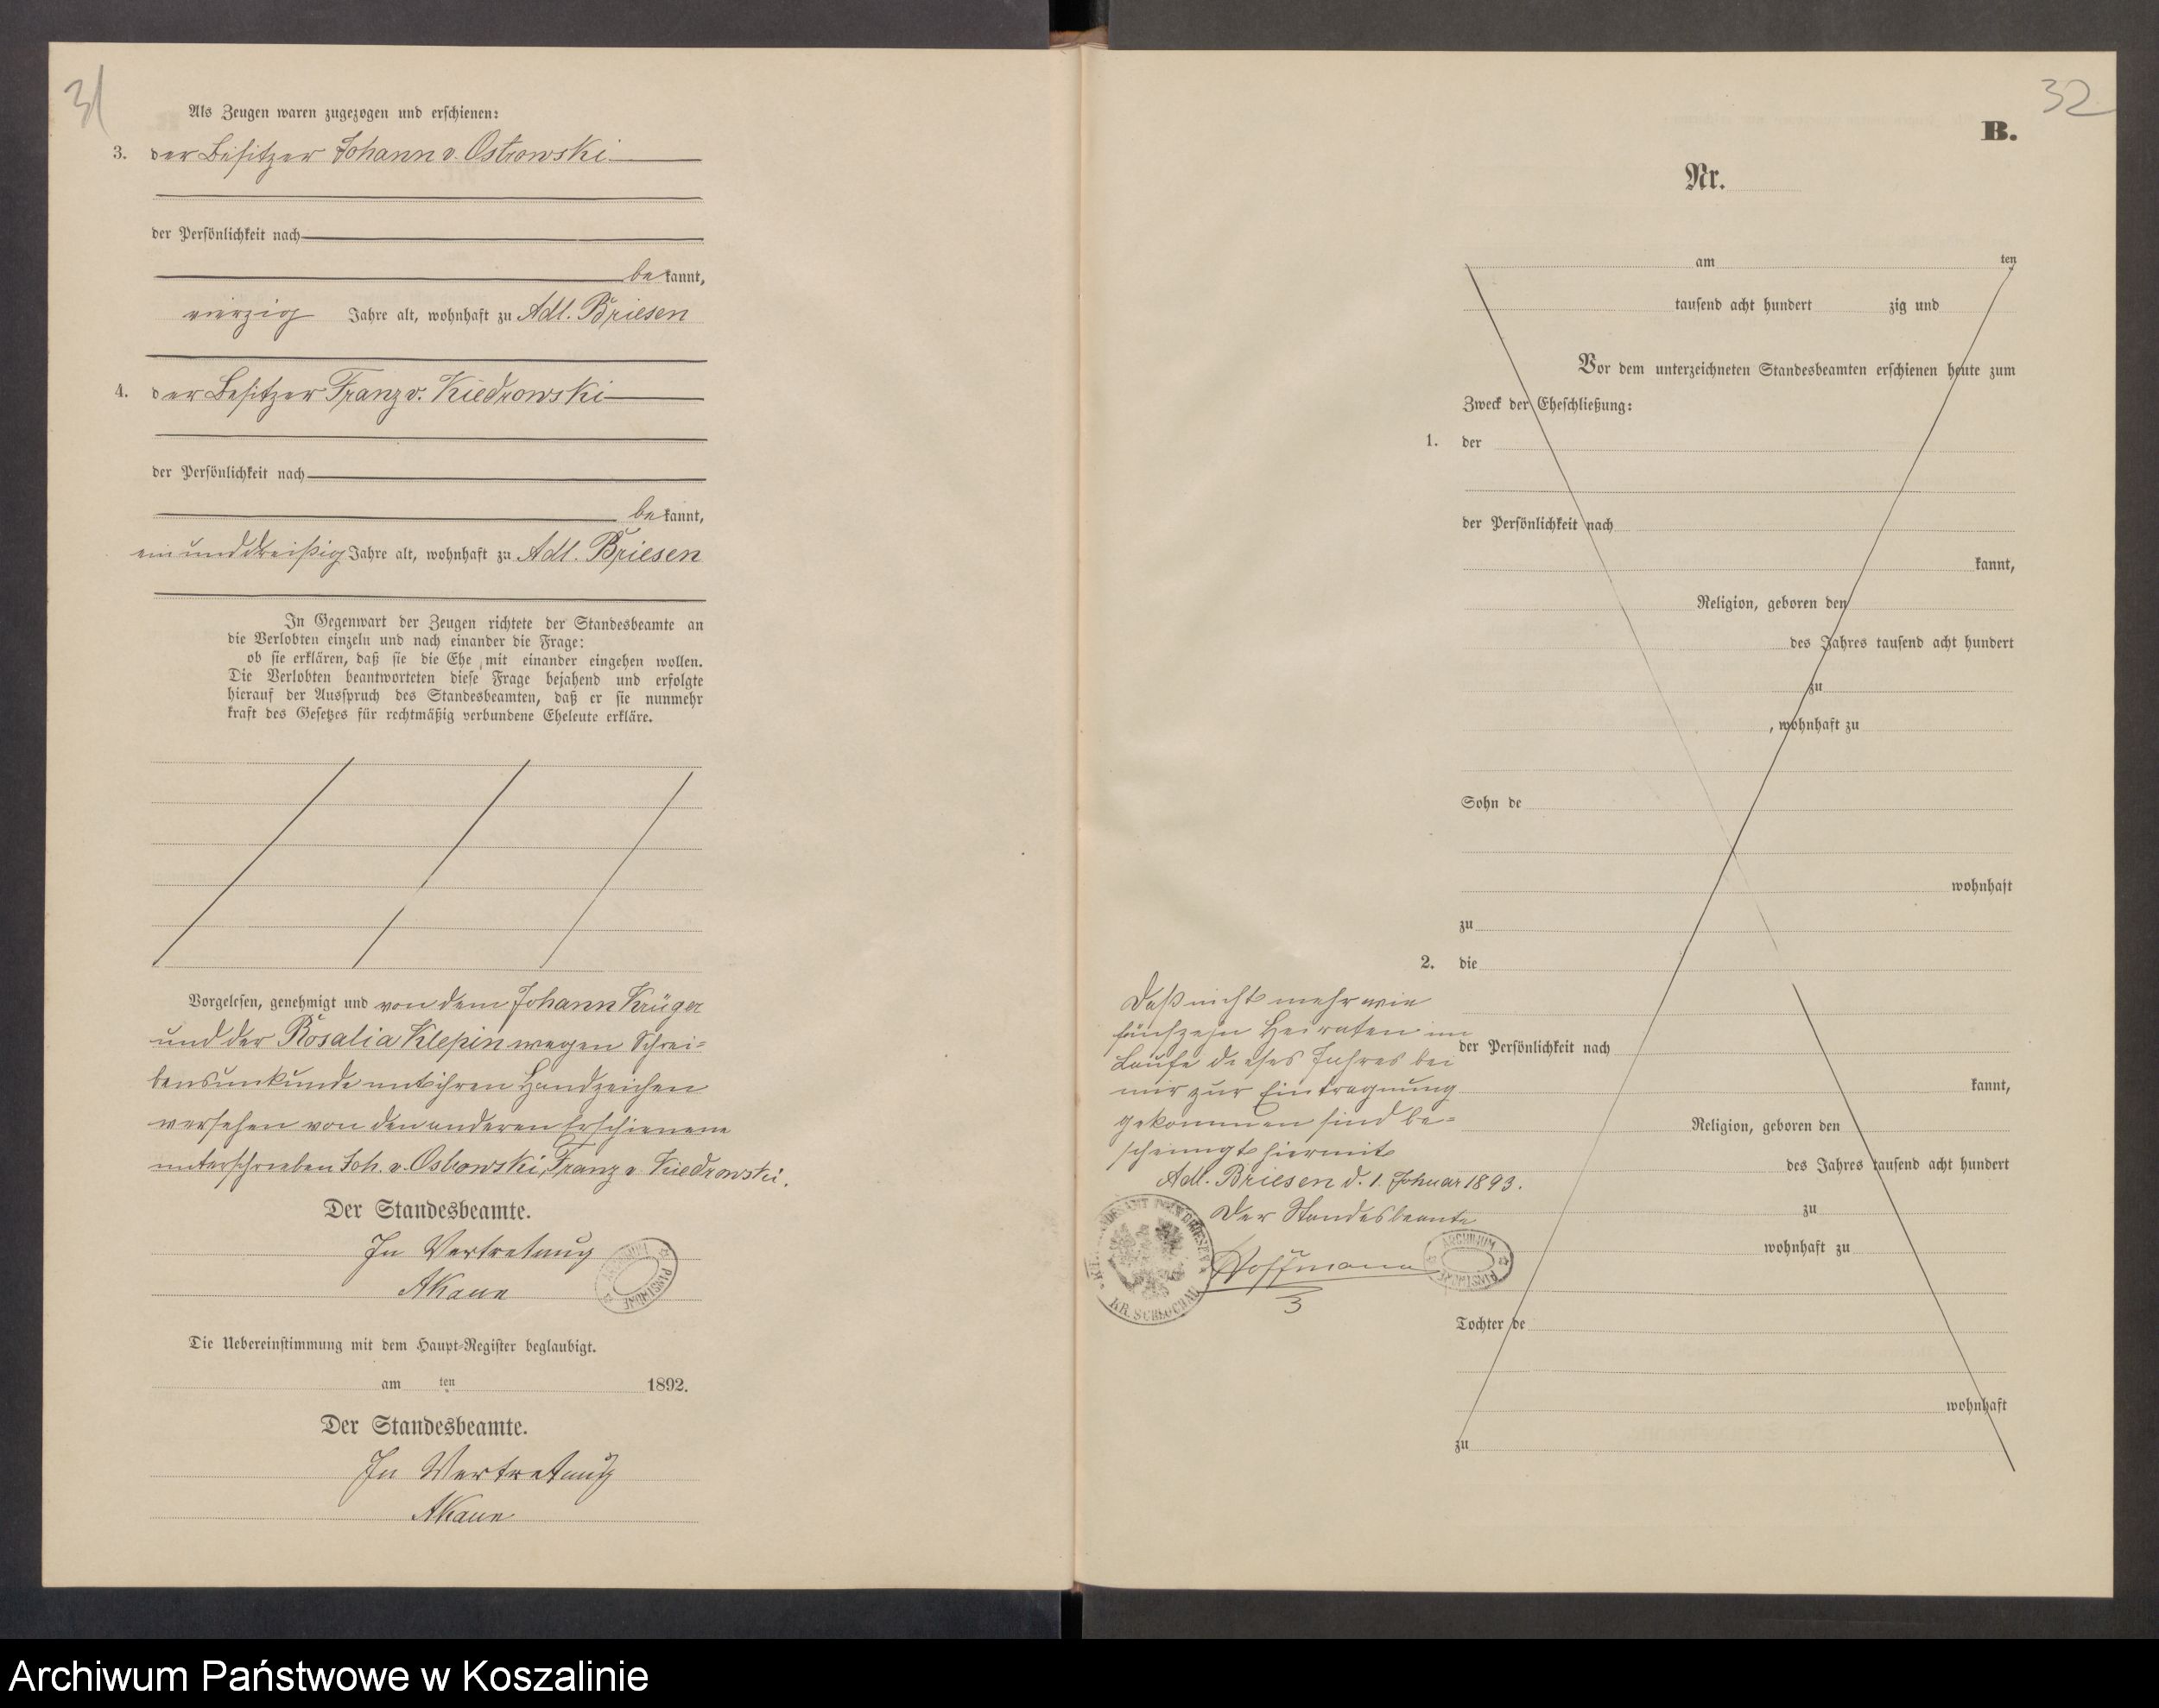 31
Als Zeugen waren zugezogen und erschienen:
3. der Besitzer Johann v. Ostrowski
der Persönlichkeit nach
bekannt,
vierzig Jahre alt, wohnhaft zu Adl. Briesen
4. der Besitzer Franz v. Kiedrowski
der Persönlichkeit nach
bekannt,
einunddreißig Jahre alt, wohnhaft zu Adl. Briesen
In Gegenwart der Zeugen richtete der Standesbeamte an
die Verlobten einzeln und nach einander die Frage:
ob sie erklären, daß sie die Ehe mit einander eingehen wollen.
Die Verlobten beantworteten diese Frage bejahend und erfolgte
hierauf der Ausspruch des Standesbeamten, daß er sie nunmehr
kraft des Gesetzes für rechtmäßig verbundene Eheleute erkläre.
Vorgelesen, genehmigt und von dem Johann Krüger
und der Rosalia Klepin wegen Schrei=
bensunkunde mit ihren Handzeichen
versehen von den anderen Erschienene
unterschrieben Joh. v. Ostrowski, Franz v. Kiedrowski.
Der Standesbeamte.
In Vertretung
Die Uebereinstimmung mit dem Haupt-Register beglaubigt.
am ten 1892.
Der Standesbeamte.
In Vertretung
32
B.
Nr.
am ten
tausend acht hundert zig und
Vor dem unterzeichneten Standesbeamten erschienen heute zum
Zweck der Eheschließung:
1. der
der Persönlichkeit nach
kannt,
Religion, geboren den
des Jahres tausend acht hundert
zu
, wohnhaft zu
Sohn de
wohnhaft
zu
2. die
der Persönlichkeit nach
kannt,
Religion, geboren den
des Jahres tausend acht hundert
zu
wohnhaft zu
Tochter de
wohnhaft
zu
Daß nicht mehr wie
fünfzehn Heiraten im
Laufe dieses Jahres bei
mir zur Eintragung
gekommen sind be=
scheinigt hiermit
Adl. Briesen d. 1. Januar 1893.
Der Standesbeamte
Hoffmann
KR. SCHLOCHAU
ARCHIWUM
Archiwum Państwowe w Koszalinie